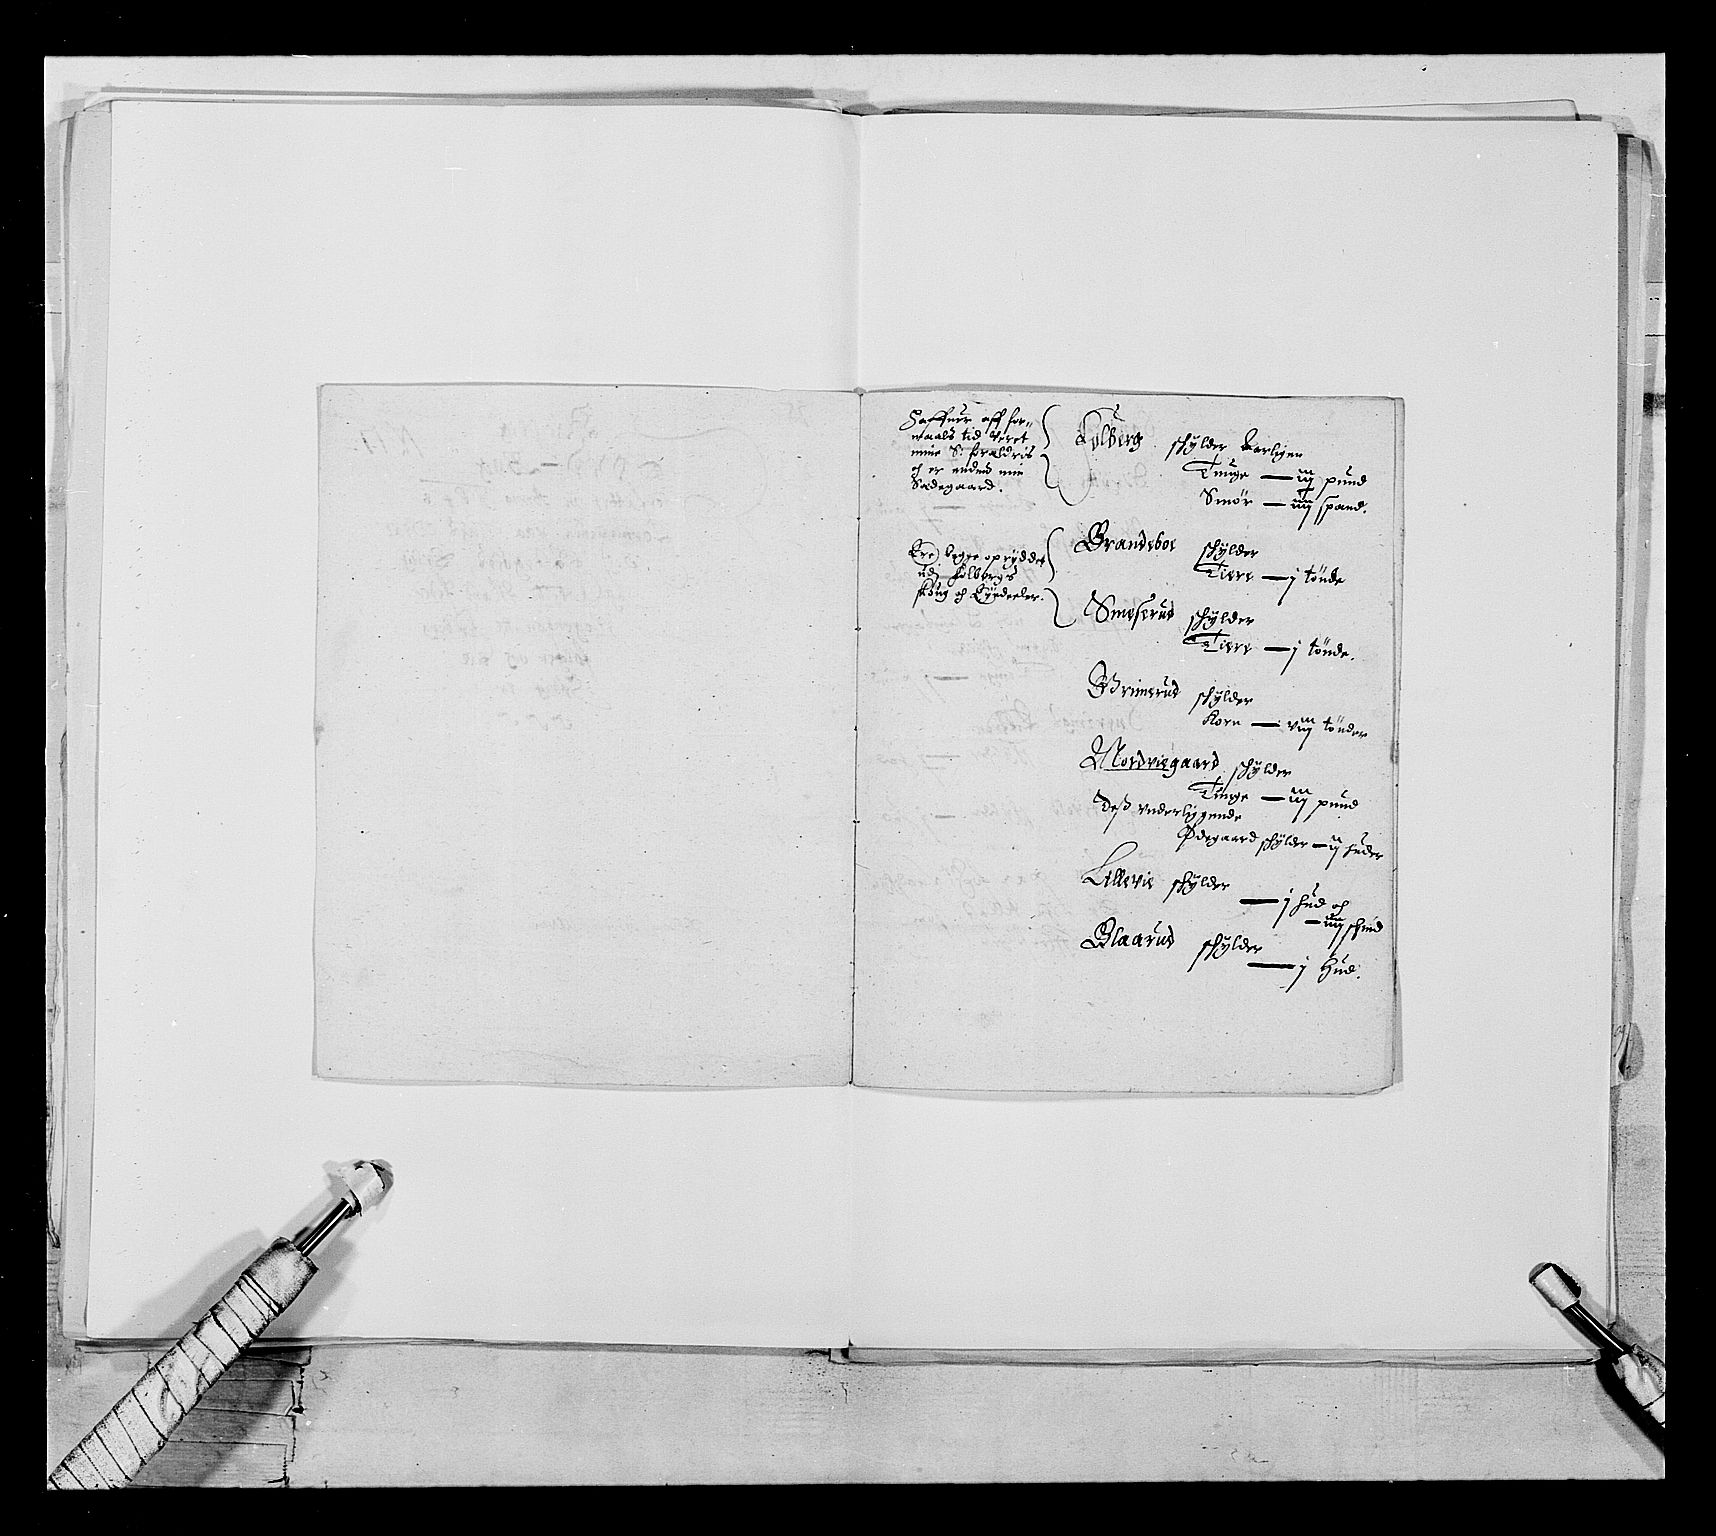 Haffuer aff for-
maals tid veret
mine S: foraldris
och er endnu min
Sædegaard.
Folberg schylder Aarligen
Tunge — iij pund
Smør — iiij spand.
Ere begge opryddet
udj Folbergs
skoug och Eyedeeler.
Brandeboe schylder
Tiere — j tønde
Smeserud schylder
Tiere — j tønde.
Grimerud schylder
Korn — viij tønder
Nordviegaard schylder
Tunge — iij pund
Deß underliggende
Ødegaard schylder — ij huder
Lillevie schylder
— j hud och
— iiij schind
Blaarud schylder
— j Hud.